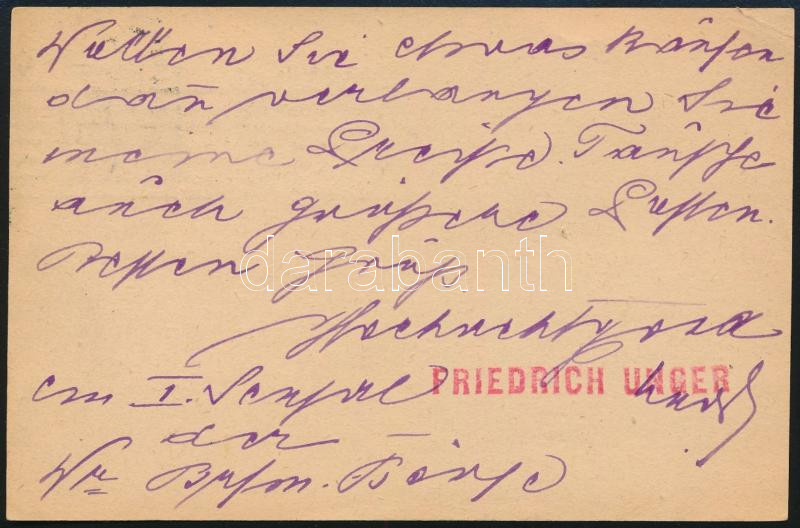 Wollen Sie etwas kaufen
dañ verlangen Sie
meine Preise. Tausche
auch größere Posten.
Besten Gruß
darabanth
Hochachtend
FRIEDRICH UNGER
em I. Sensal
der
Wr Börse